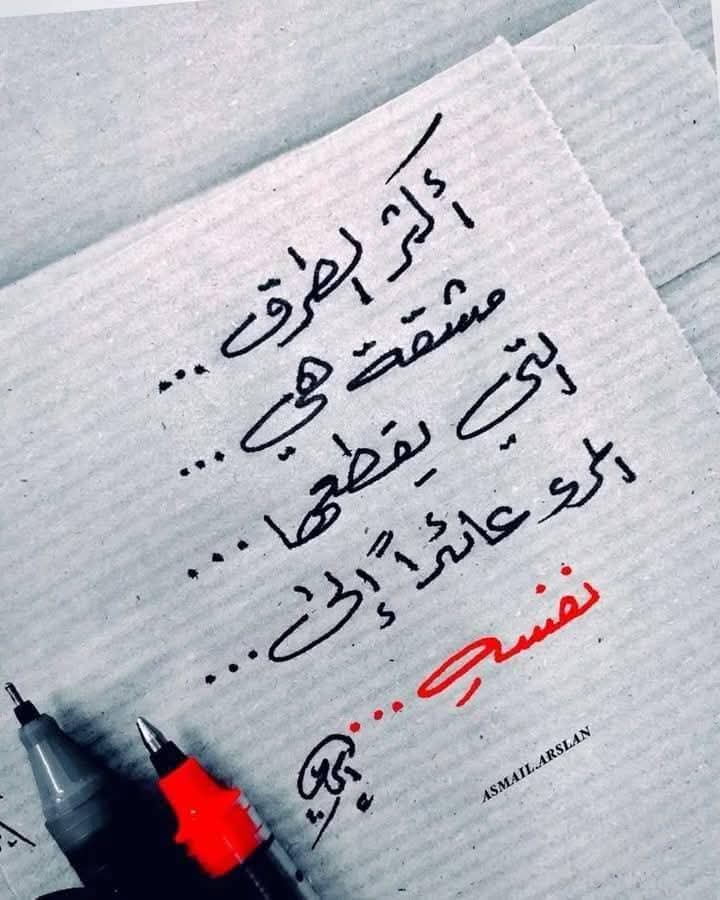 أكثر الطرق ...
مشقة هي ...
التي يقطعها ...
المرء عائداً إلىٰ ...
نفسهِ ...
ASMAIL.ARSLAN